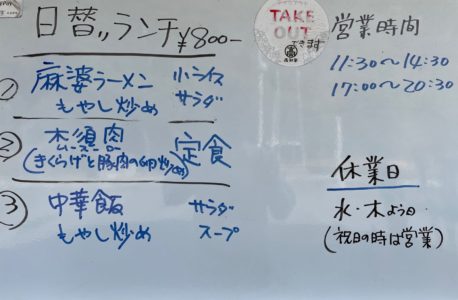 日替ランチ ¥800-
① 麻婆ラーメン 小ライス
もやし炒め サラダ
② 木須肉 定食
ムースーロー
(きくらげと豚肉の卵炒め)
③ 中華飯 サラダ
もやし炒め スープ
TAKE
OUT
できます
営業時間
11:30〜14:30
17:00〜20:30
休業日
水・木よう日
(祝日の時は営業)